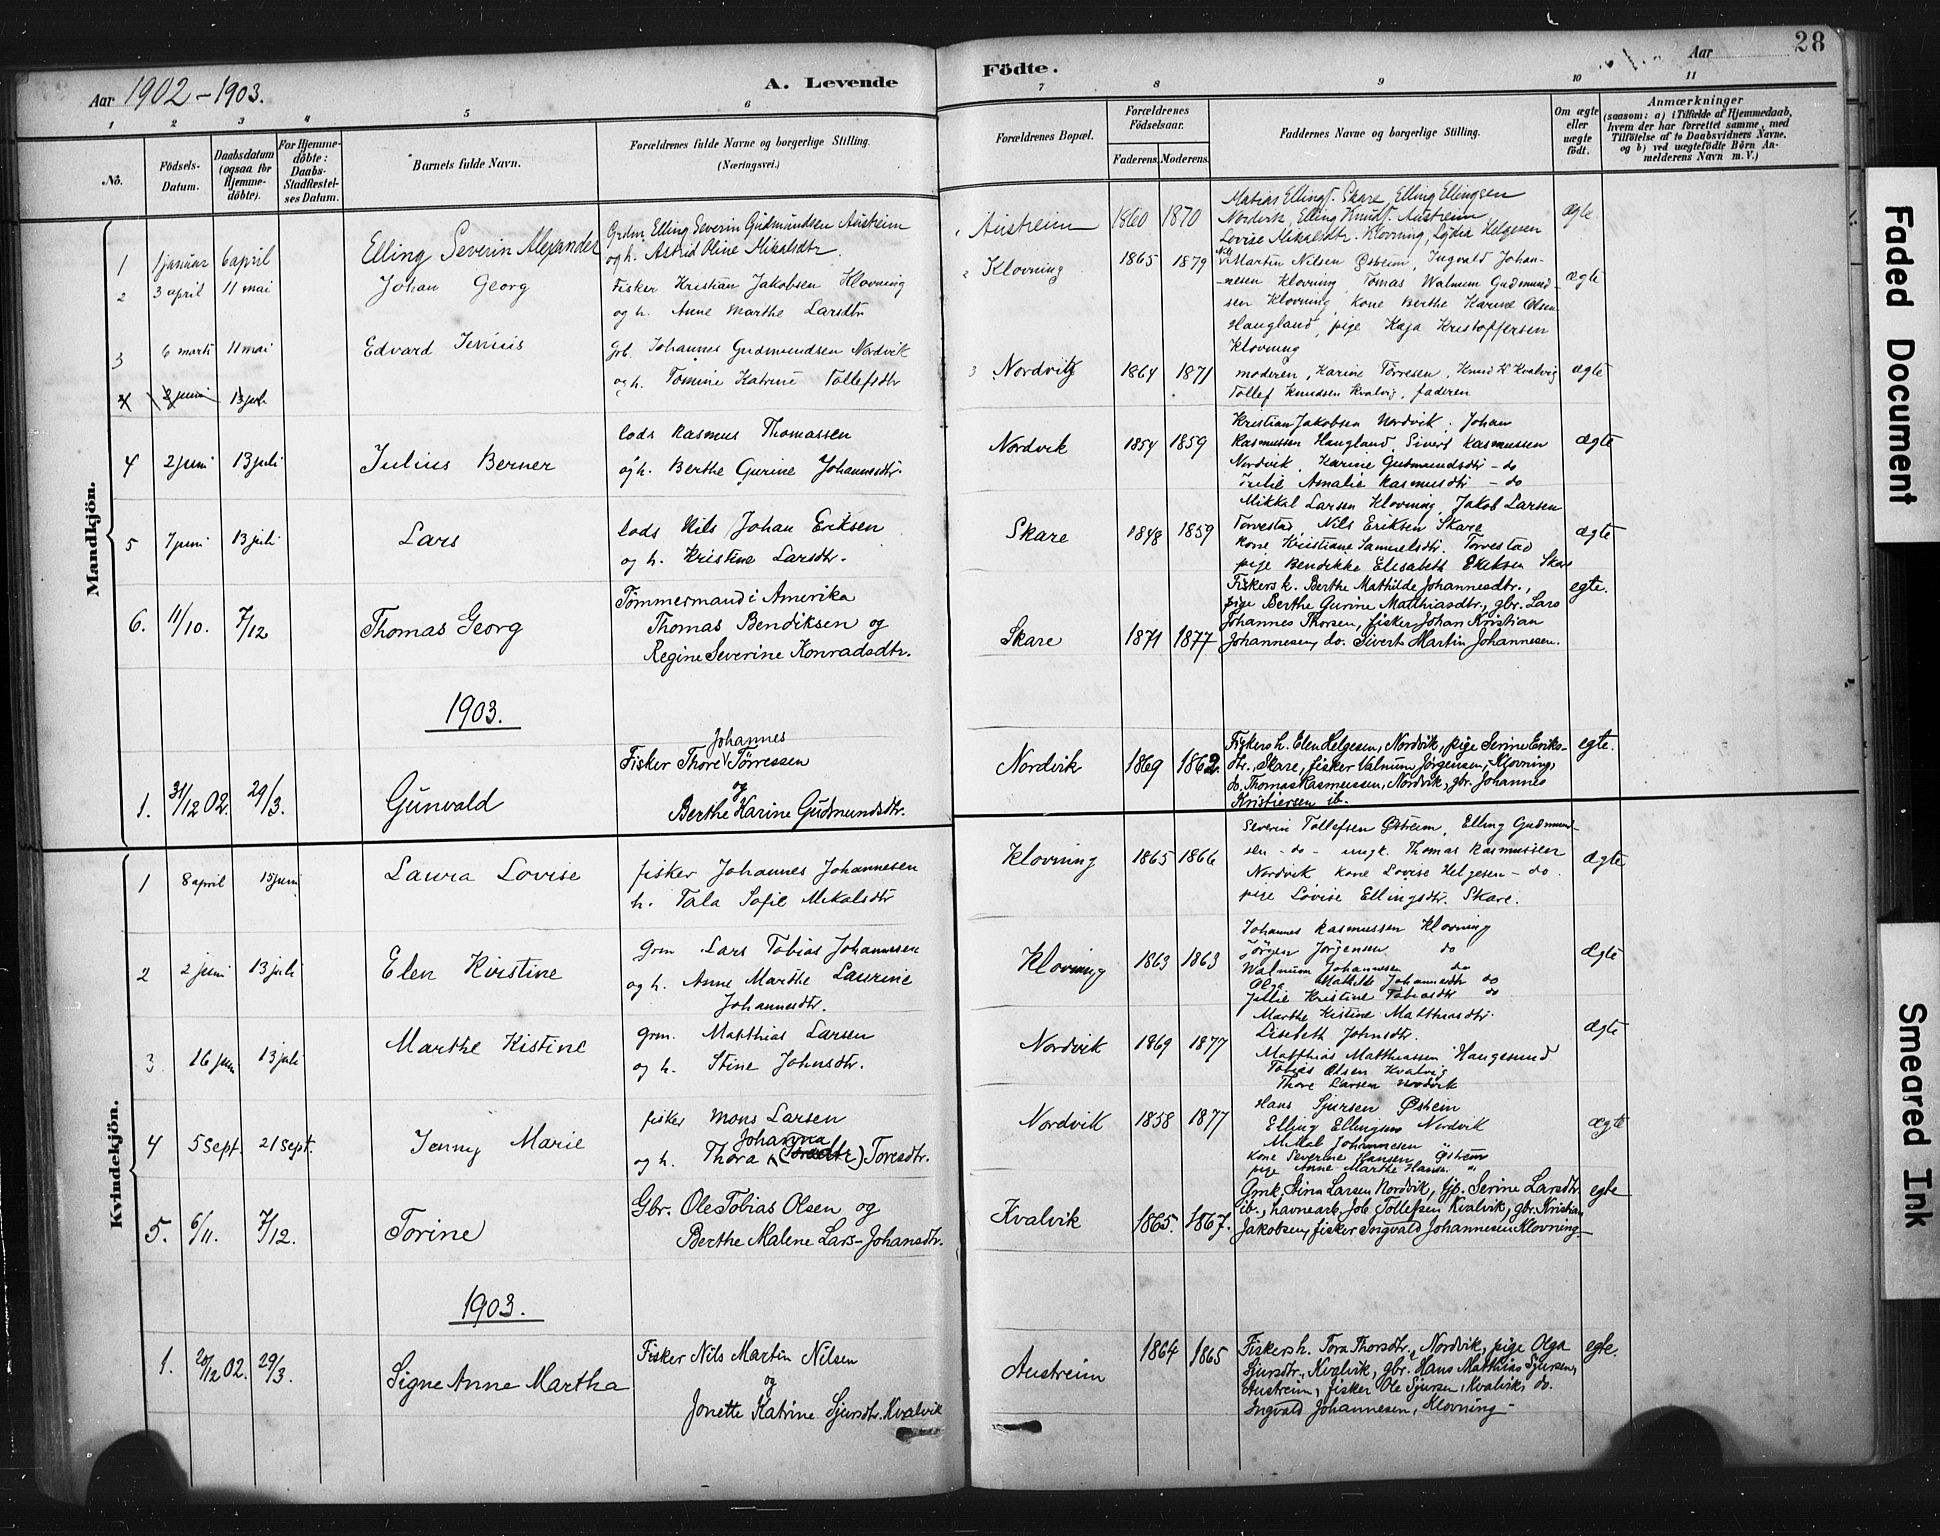 Aar 1902-1903.
A. Levende
Födte.
Aar
28
1 2 3 4 5 6 7 8 9 10 11
No.
Födsels-Datum.
Daabsdatum (ogsaa for Hjemmedöbte).
For Hjemmedöbte: Daabs-Stadfæstelses Datum.
Barnets fulde Navn.
Forældrenes fulde Navne og borgerlige Stilling.
(Næringsvei.)
Forældrenes Bopæl.
Forældrenes Födselsaar.
Faderens. Moderens.
Faddernes Navne og borgerlige Stilling.
Om ægte eller uægte födt.
Anmærkninger
(saasom: a) i Tilfælde af Hjemmedaab, hvem der har forrettet samme, med Tilföielse af to Daabsvidners Navne, og b) ved uægtefödte Börn Anmelderens Navn m. V.)
Mandkjön.
1 1 januar 6 april Elling Severin Alexander
Grdm Elling Severin Gudmundsen Austreim
og h. Astrid Oline Mikalsdtr.
Austreim 1860 1870
Matias Ellings. Skare, Elling Ellingsen
Nordvik, Elling Knuds. Austreim
Lovise Mikalsdtr. Klovning, Lydia Helgesen
ægte
2 3 april 11 mai Johan Georg
Fisker Kristian Jakobsen Klovning
og h. Anne Marthe Larsdtr
2 Klovning 1865 1879
Martin Nilsen Østeim, Ingvald Johan-
nesen Klovning, Tomas Walnum Gudmund-
sen Klovning, kone Berthe Karine Olsen
Haugland, pige Kaja Kristoffersen
Klovning
ægte
3 6 marts 11 mai Edvard Jenius
Grb. Johannes Gudmundsen Nordvik
og h. Tomine Katrine Tollefsdtr
3 Nordvik 1864 1871
moderen, Karine Tørresen, Knud K Kvalvig
Tollef Knudsen Kvalvig, faderen
ægte
4 2 juni 13 juli
4 2 juni 13 juli Julius Berner
lods Rasmus Thomassen
og h. Berthe Gurine Johannesdtr.
Nordvik 1854 1859
Kristian Jakobsen Nordvik, Johan
Rasmussen Haugland, Sivert Rasmussen
Nordvik, Karine Gudmundsdtr - do
Amalie Rasmusdtr - do
ægte
5 7 juni 13 juli Lars
lods Nils Johan Eriksen
og h. Kristine Larsdtr.
Skare 1848 1859
Mikkal Larsen Klovning, Jakob Larsen
Torvestad, Nils Eriksen Skare,
kone Kristiane Samuelsdtr. Torvestad
pige Bendikke Elisabeth Eriksen Skare
ægte
6. 11/10. 7/12 Thomas Georg
Tømmermand i Amerika
Thomas Bendiksen og
Regine Severine Konradsdtr.
Skare 1871 1877
Fiskers k. Berthe Mathilde Johannesdtr.,
pige Berthe Gurine Matthiasdtr., gbr. Lars
Johannes Thorsen, fisker Johan Kristian
Johannesen, do. Sivert Martin Johannesen.
egte.
1903.
1. 31/12 02. 29/3. Gunvald
Johannes
Fisker Thore Tørressen
og
Berthe Karine Gudmundsdtr.
Nordvik 1869 1862.
Fiskers h. Elen Helgesen, Nordvik, pige Serine Eriks-
dtr., Skare, fisker Valnum Jørgensen, Klovning,
do. Thomas Rasmussen, Nordvik, gbr. Johannes
Kristiersen ib.
egte.
Kvindekjön.
1 8 april 15 juni Laura Lovise
fisker Johannes Johannesen
h. Tala Sofie Mikalsdtr
Klovning 1865 1866
Severin Tollefsen Østeim, Elling Gudmund-
sen - do - ungk. Thomas Rasmussen
Nordvik kone Lovise Helgesen - do.
pige Lovise Ellingsdtr. Skare.
ægte
2 2 juni 13 juli Elen Kristine
Grm Lars Tobias Johannesen
og h. Anne Marthe Laurine
Johannesdtr.
Klovning 1863 1863
Johannes Rasmussen Klovning
Jørgen Jørgensen do
Walnum Johannesen do
Olga Mathilde Johannesdtr do
Julie Kristine Tobiasdtr do
ægte
3 16 juni 13 juli Marthe Kistine
Grm. Matthias Larsen
og h. Stine Johnsdtr.
Nordvik 1869 1877
Marthe Kistine Matthiasdtr.
Lisebeth Johnsdtr.
Matthias Matthiassen Haugesund
Tobias Olsen Kvalvig
Thore Larsen Nordvik
ægte
4 5 Sept. 21 Sept. Jenny Marie
fisker Mons Larsen
Johanna
og h. Thora (Toredtr) Toresdtr.
Nordvik 1858 1877
Hans Sjursen Østeim
Elling Ellingsen Nordvik
Mikal Johannesen "
kone Severine Hansen Østeim
pige Anne Marthe Hansen "
ægte
5. 6/11. 7/12. Torine
Gbr. Ole Tobias Olsen og
Berthe Malene Lars-Johansdtr.
Kvalvik 1865. 1867.
Gmk. Stina Larsen Nordvik, tjp. Serine Larsdtr.
ib., havnearb. Job Tollefsen Kvalvik, gbr. Kristian
Jakobsen, fisker Ingvald Johannesen Klovning -
egte
1903.
1. 20/12 02. 29/3. Signe Anne Martha
Fisker Nils Martin Nilsen
og
Jonette Katrine Sjursdtr. Kvalvik
Austreim 1864 1865
Fiskersh. Tora Thorsdtr., Nordvik, pige Olga
Sjursdtr., Kvalvik, gbr. Hans Matthias Sjursen,
Austreim, fisker Ole Sjursen, Kvalvik, do.
Ingvald Johannesen, Klovning -
egte.
Faded Document
Smeared Ink